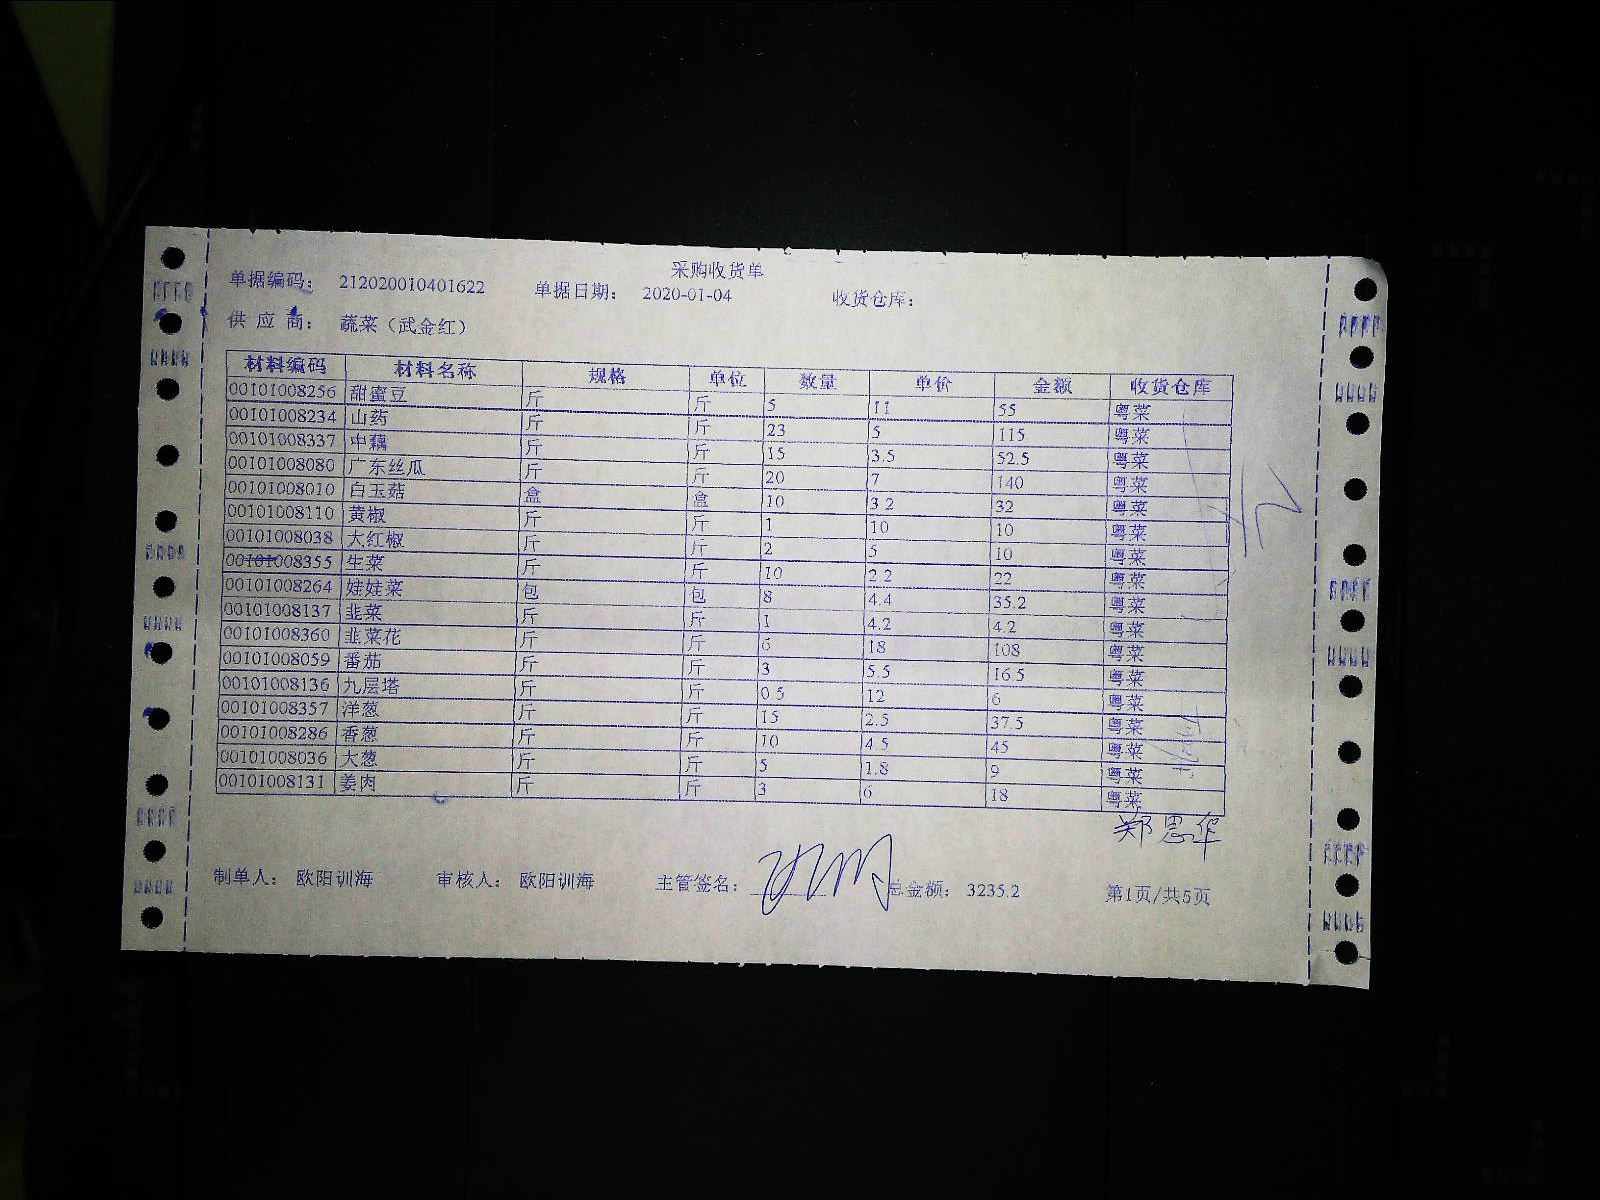 采购收货单
单据编码： 212020010401622 单据日期： 2020-01-04 收货仓库：
供 应 商： 蔬菜（武金红）
材料编码 材料名称 规格 单位 数量 单价 金额 收货仓库
00101008256 甜蜜豆 斤 斤 5 11 55 粤菜
00101008234 山药 斤 斤 23 5 115 粤菜
00101008337 中藕 斤 斤 15 3.5 52.5 粤菜
00101008080 广东丝瓜 斤 斤 20 7 140 粤菜
00101008010 白玉菇 盒 盒 10 3.2 32 粤菜
00101008110 黄椒 斤 斤 1 10 10 粤菜
00101008038 大红椒 斤 斤 2 5 10 粤菜
00101008355 生菜 斤 斤 10 2.2 22 粤菜
00101008264 娃娃菜 包 包 8 4.4 35.2 粤菜
00101008137 韭菜 斤 斤 1 4.2 4.2 粤菜
00101008360 韭菜花 斤 斤 6 18 108 粤菜
00101008059 番茄 斤 斤 3 5.5 16.5 粤菜
00101008136 九层塔 斤 斤 0.5 12 6 粤菜
00101008357 洋葱 斤 斤 15 2.5 37.5 粤菜
00101008286 香葱 斤 斤 10 4.5 45 粤菜
00101008036 大葱 斤 斤 5 1.8 9 粤菜
00101008131 姜肉 斤 斤 3 6 18 粤菜
郑思华
制单人： 欧阳训海 审核人： 欧阳训海 主管签名： 总金额： 3235.2 第1页/共5页